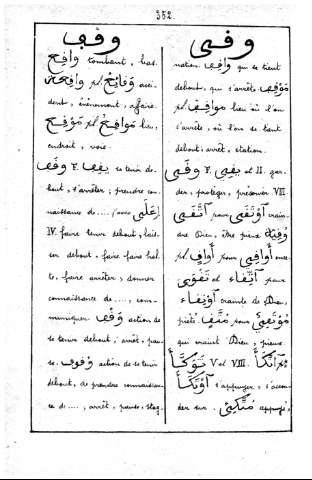 352
وقف
وافع tombant, bas.
pl. accident, événement, affaire.
pl. lieu, endroit, voie.
وقف F. يقف se tenir debout, s'arrêter; prendre connaissance de .... (avec على)
IV. faire tenir debout, laisser debout, faire faire halte, faire arrêter, donner connaissance de ...., communiquer
وقف action de se tenir debout, arrêt, pause.
وقوف action de se tenir debout, de prendre connaissance de ...., arrêt, pause, stag-
وقى
nation. واقف qui se tient debout, qui s'arrête.
موقف pl. مواقف lieu où l'on s'arrête, où l'on se tient debout, arrêt, station.
وقى F. يقي et II. garder, protéger, préserver VIII.
pour craindre Dieu, être pieux
pl. pour once.
et pour crainte de Dieu, piété
pour qui craint Dieu, pieux.
V et VIII. s'appuyer, s'accouder sur. appuyé,